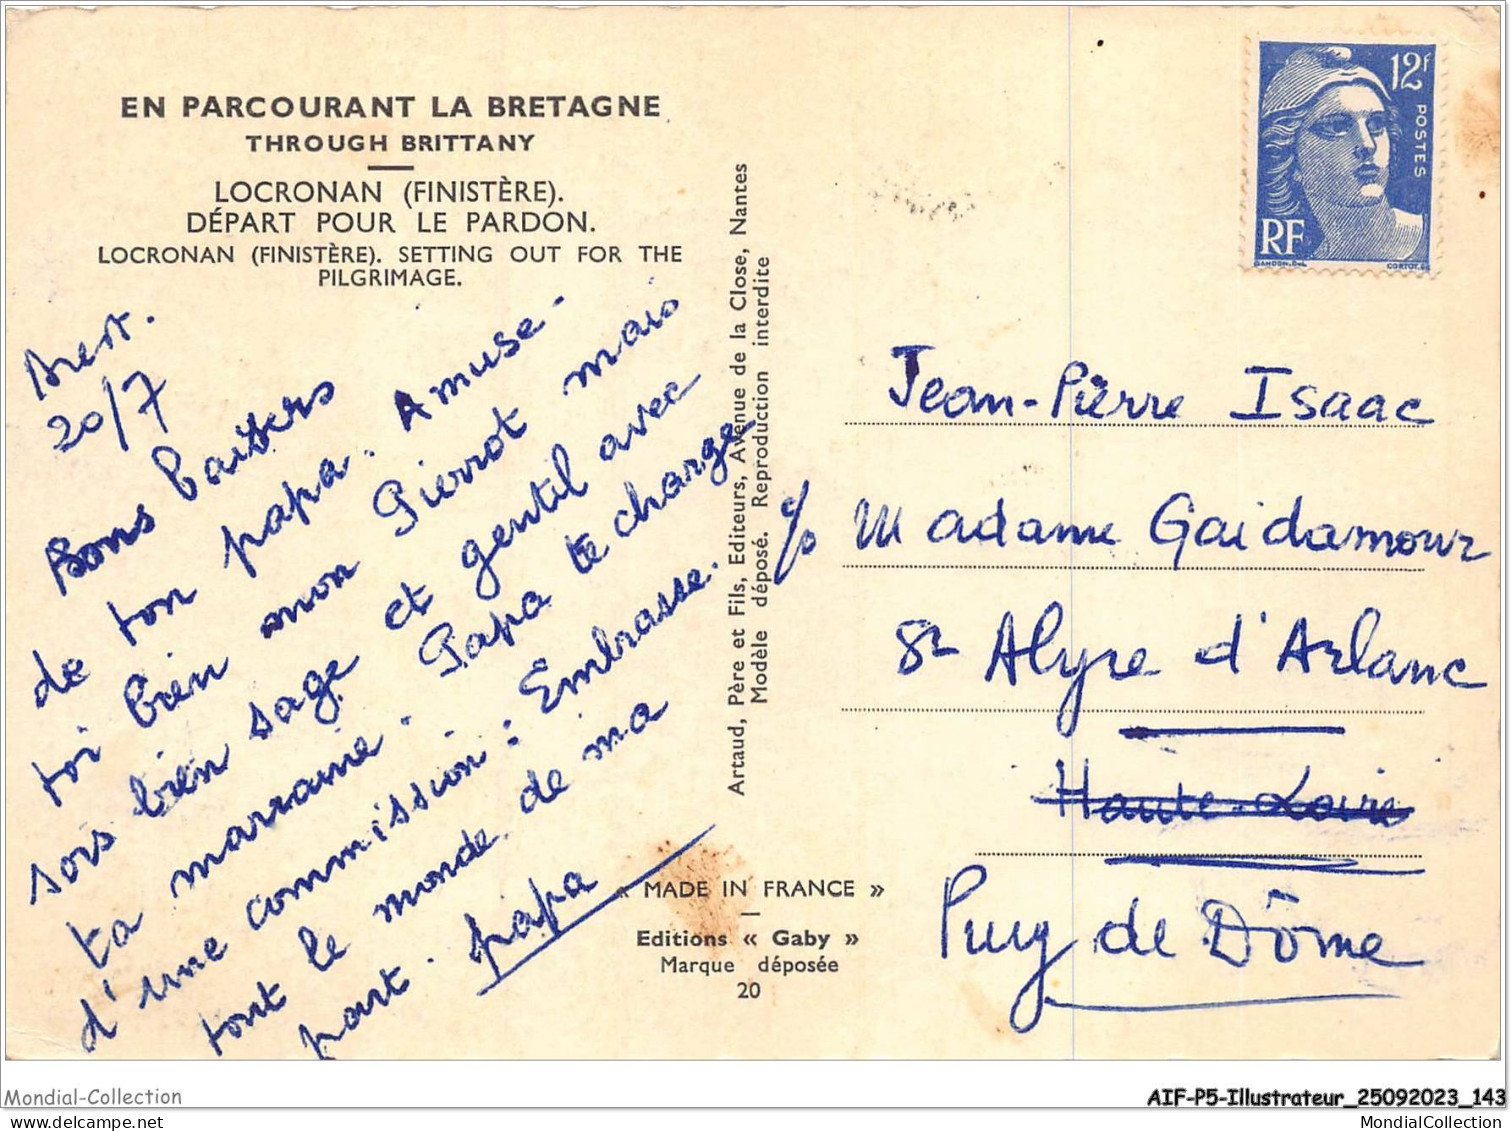 EN PARCOURANT LA BRETAGNE
THROUGH BRITTANY
LOCRONAN (FINISTÈRE).
DÉPART POUR LE PARDON.
LOCRONAN (FINISTÈRE). SETTING OUT FOR THE
PILGRIMAGE.
Brest.
20/7
Bons baisers
de ton papa. Amuse-
toi bien mon Pierrot mais
sois bien sage et gentil avec
ta marraine. Papa te charge
d'une commission : Embrasse
tout le monde de ma
part. papa
Artaud, Père et Fils, Editeurs, Avenue de la Close, Nantes
Modèle déposé. Reproduction interdite
« MADE IN FRANCE »
Editions « Gaby »
Marque déposée
20
12f
POSTES
RF
GANDON.DEL
CORTOT.SC
Jean-Pierre Isaac
c/o Madame Gaidamour
St Alyre d'Arlanc
Haute-Loire
Puy de Dôme
Mondial-Collection
AIF-P5-Illustrateur_25092023_143
MondialCollection